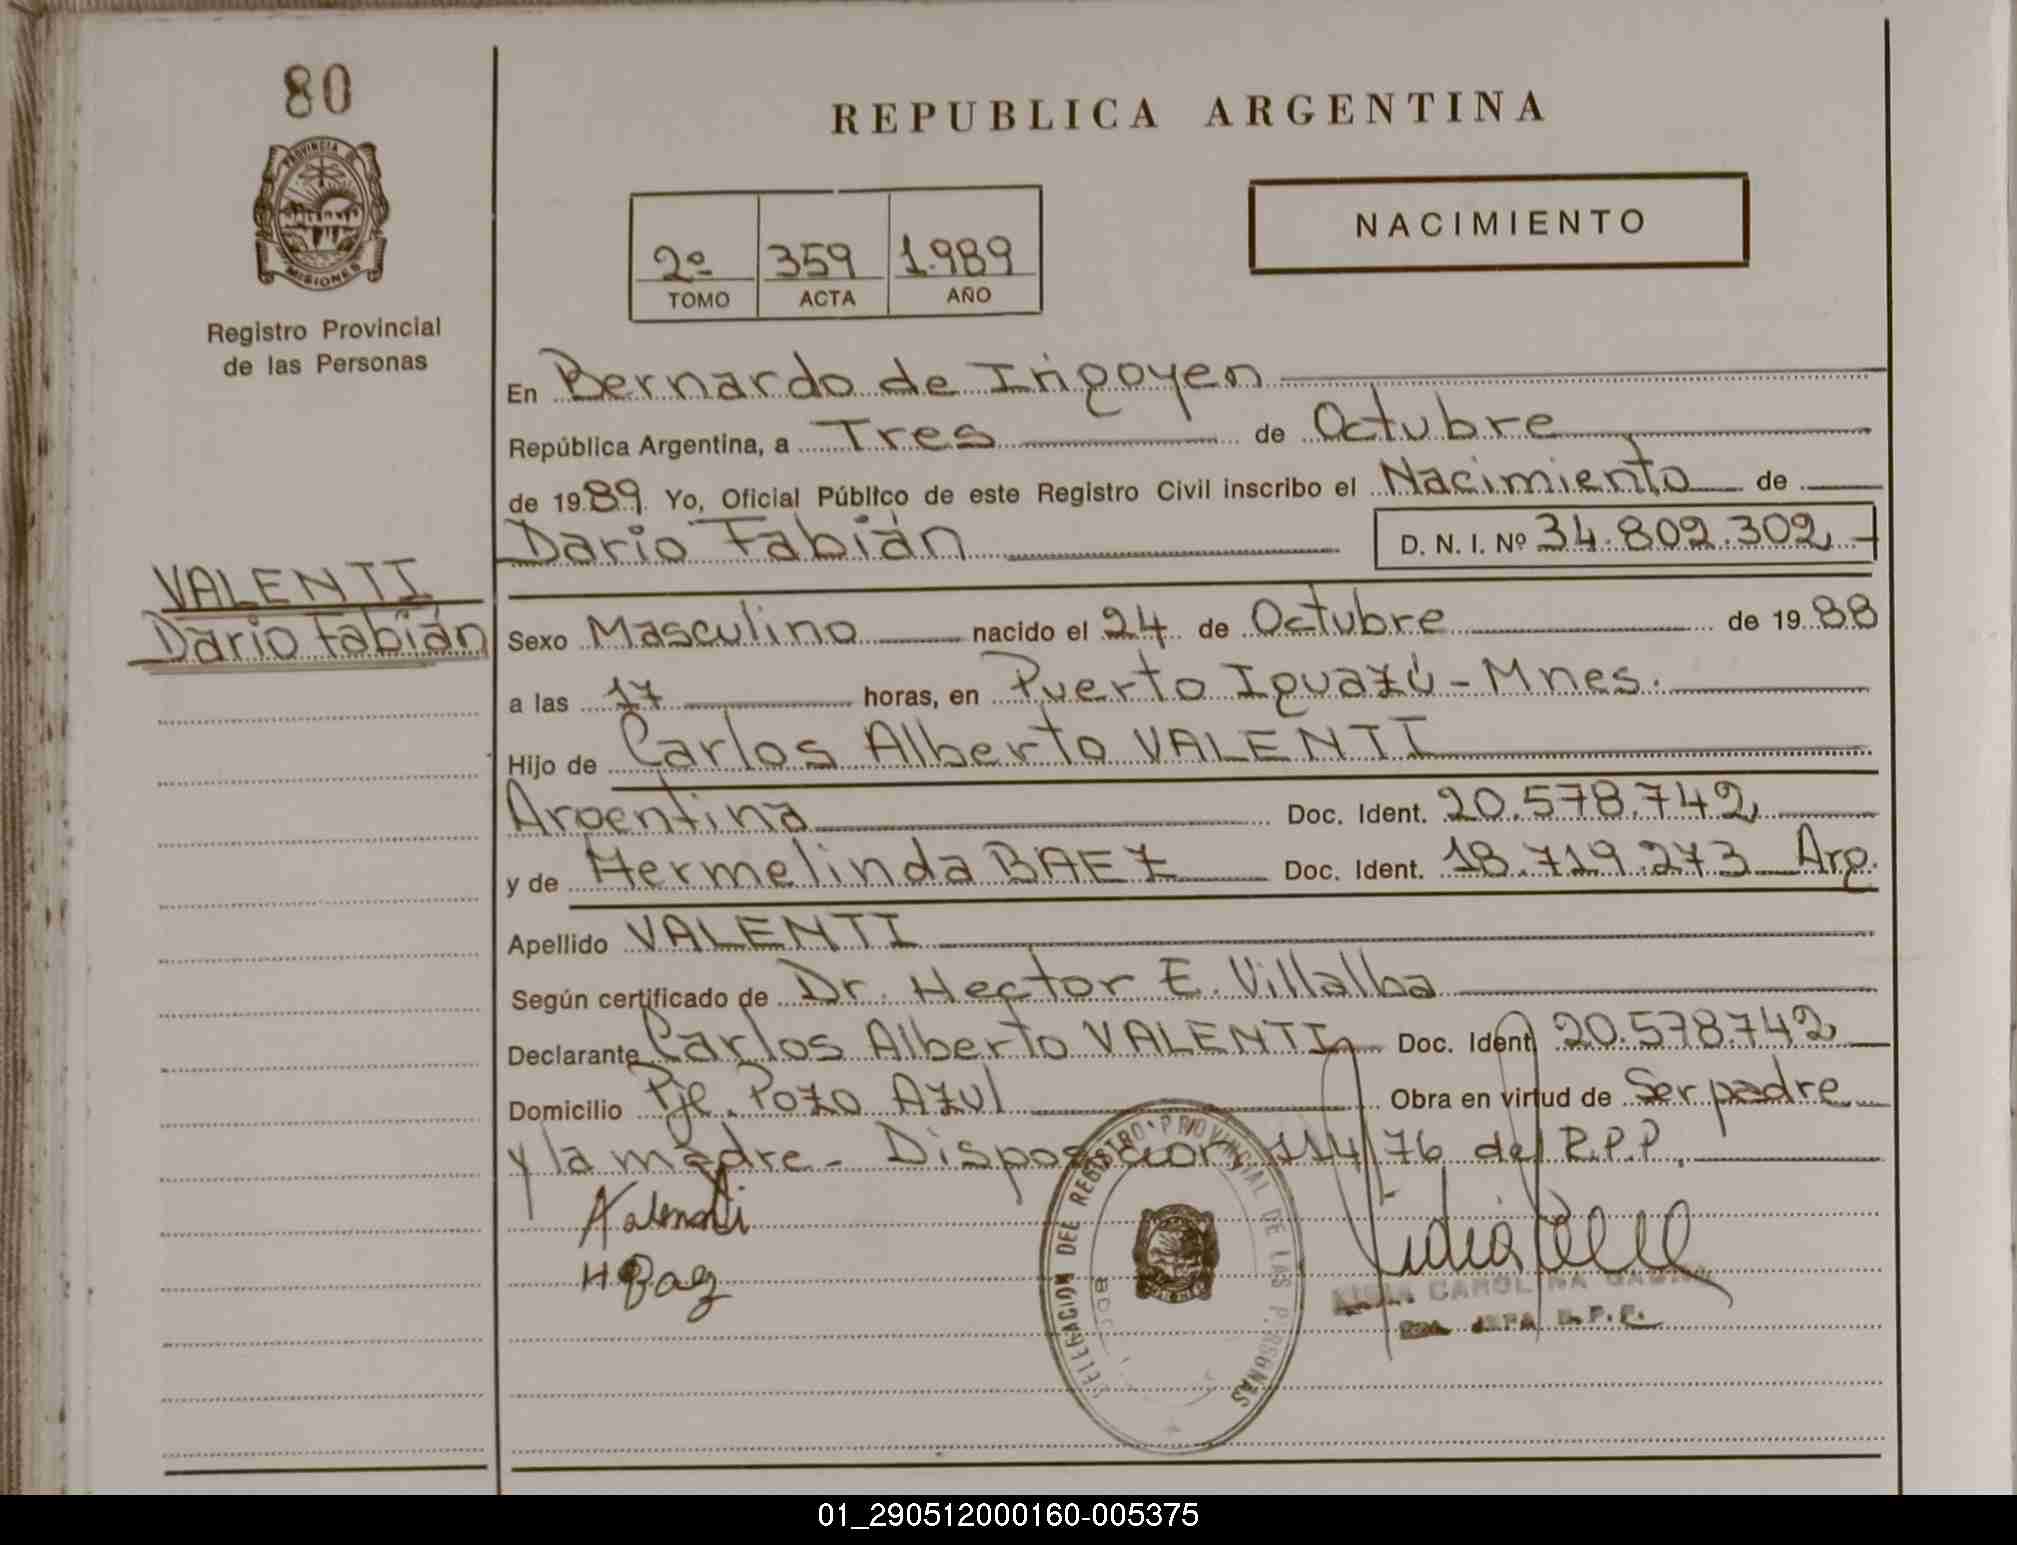 80
PROVINCIA DE
MISIONES
Registro Provincial
de las Personas
VALENTI
Dario Fabián
REPUBLICA ARGENTINA
NACIMIENTO
2º 359 1.989
TOMO ACTA AÑO
En Bernardo de Irigoyen
República Argentina, a Tres de Octubre
de 1989. Yo, Oficial Público de este Registro Civil inscribo el Nacimiento de
Dario Fabián D. N. I. Nº 34.802.302
Sexo Masculino nacido el 24 de Octubre de 1988
a las 17 horas, en Puerto Iguazú - Mnes.
Hijo de Carlos Alberto VALENTI
Argentina Doc. Ident. 20.578.742
y de Hermelinda BAEZ Doc. Ident. 18.719.273 Arg.
Apellido VALENTI
Según certificado de Dr. Hector E. Villalba
Declarante Carlos Alberto VALENTI Doc. Ident. 20.578.742
Domicilio Pje. Pozo Azul Obra en virtud de Ser padre
y la madre - Disposicion 114/76 del R.P.P.
Valenti
H Baez
DELEGACION DEL REGISTRO PROVINCIAL DE LAS PERSONAS
CAROLINA
JEFA
01_290512000160-005375